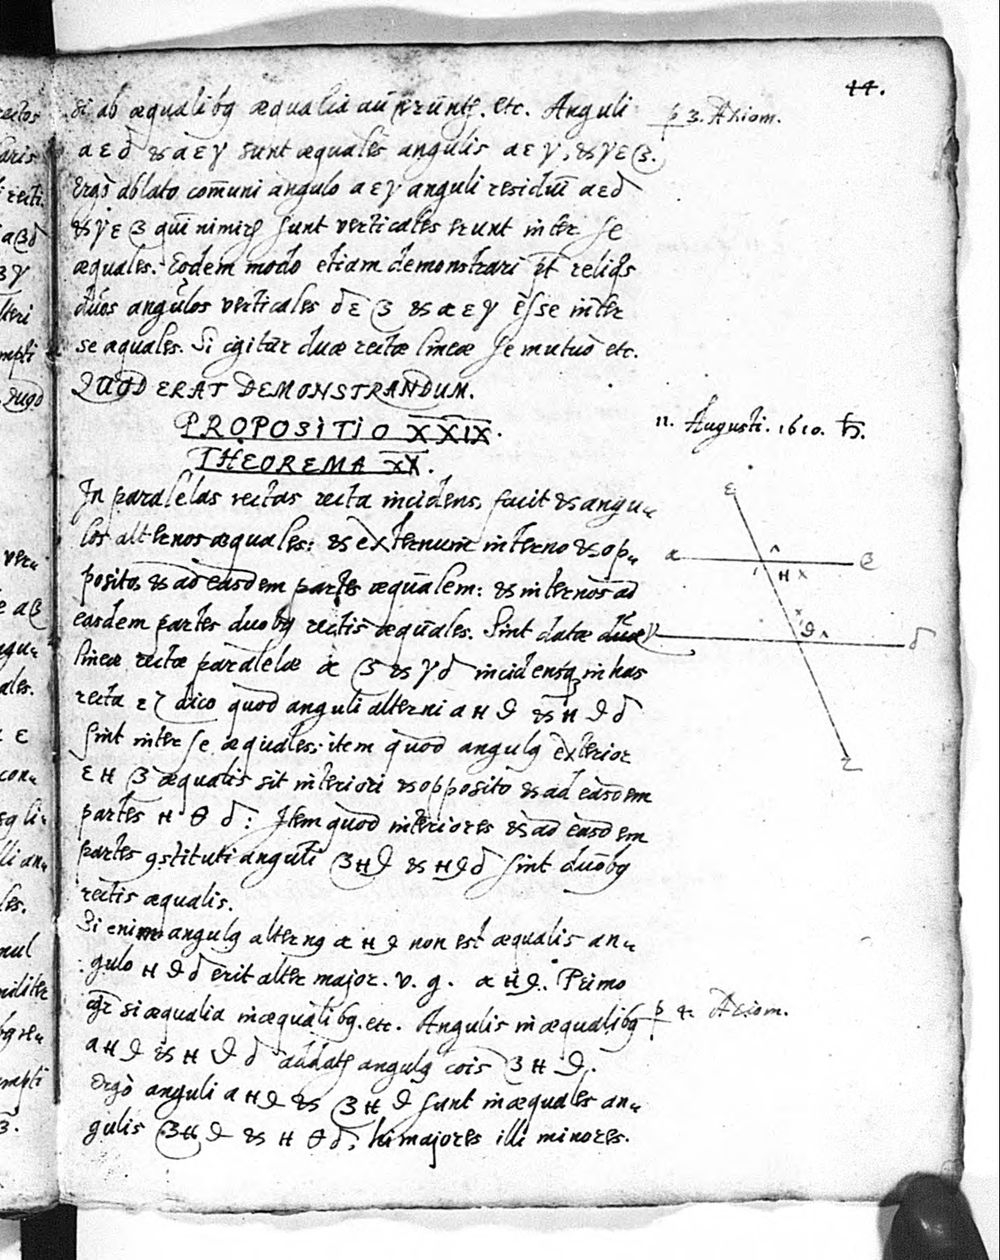 44.
si ab æqualibꝰ æqualia auferunt᷑. etc. Anguli
p 3. Axiom.
α ε δ & α ε γ sunt æquales angulis α ε γ, & γ ε β.
Ergò ablato com̄uni angulo α ε γ anguli residui α ε δ
& γ ε β qui nimirū sunt verticales erunt inter se
æquales. Eodem modo etiam demonstrari pt reliqꝰs
duos angulos verticales δ ε β & α ε γ esse inter
se æquales. Si igitur duæ rectæ lineæ se mutuò etc.
QUOD ERAT DEMONSTRANDUM.
PROPOSITIO XXIX.
11. Augusti. 1610. ♄.
THEOREMA XX.
In paralelas rectas recta incidens, facit & angu-
los alternos æquales: & externum interno & op-
posito, & ad easdem partes æqualem: & internos ad
easdem partes duobꝰ rectis æquales. Sint datæ duæ
lineæ rectæ paralelæ α β & γ δ incidensqꝫ in has
recta ε ζ dico quod anguli alterni α н θ & н θ δ
sint inter se æquales: item quod angulꝰ exterior
ε н β æqualis sit interiori & opposito & ad easdem
partes н θ δ: Item quod interiores & ad easdem
partes ꝯstituti anguli β н θ & н θ δ sint duobꝰ
rectis æqualis.
Si enim angulꝰ alternꝰ α н θ non est æqualis an-
gulo н θ δ erit alter major. v. g. α н θ. Primo
igr̄ si æqualia inæqualibꝰ. etc. Angulis inæqualibꝰ
p 4. Axiom.
α н θ & н θ δ addat᷑ angulꝰ cois β н θ.
Ergò anguli α н θ & β н θ sunt inæquales an-
gulis β н θ & н θ δ, hi majores illi minores.
ε
α
β
н
θ
γ
δ
ζ